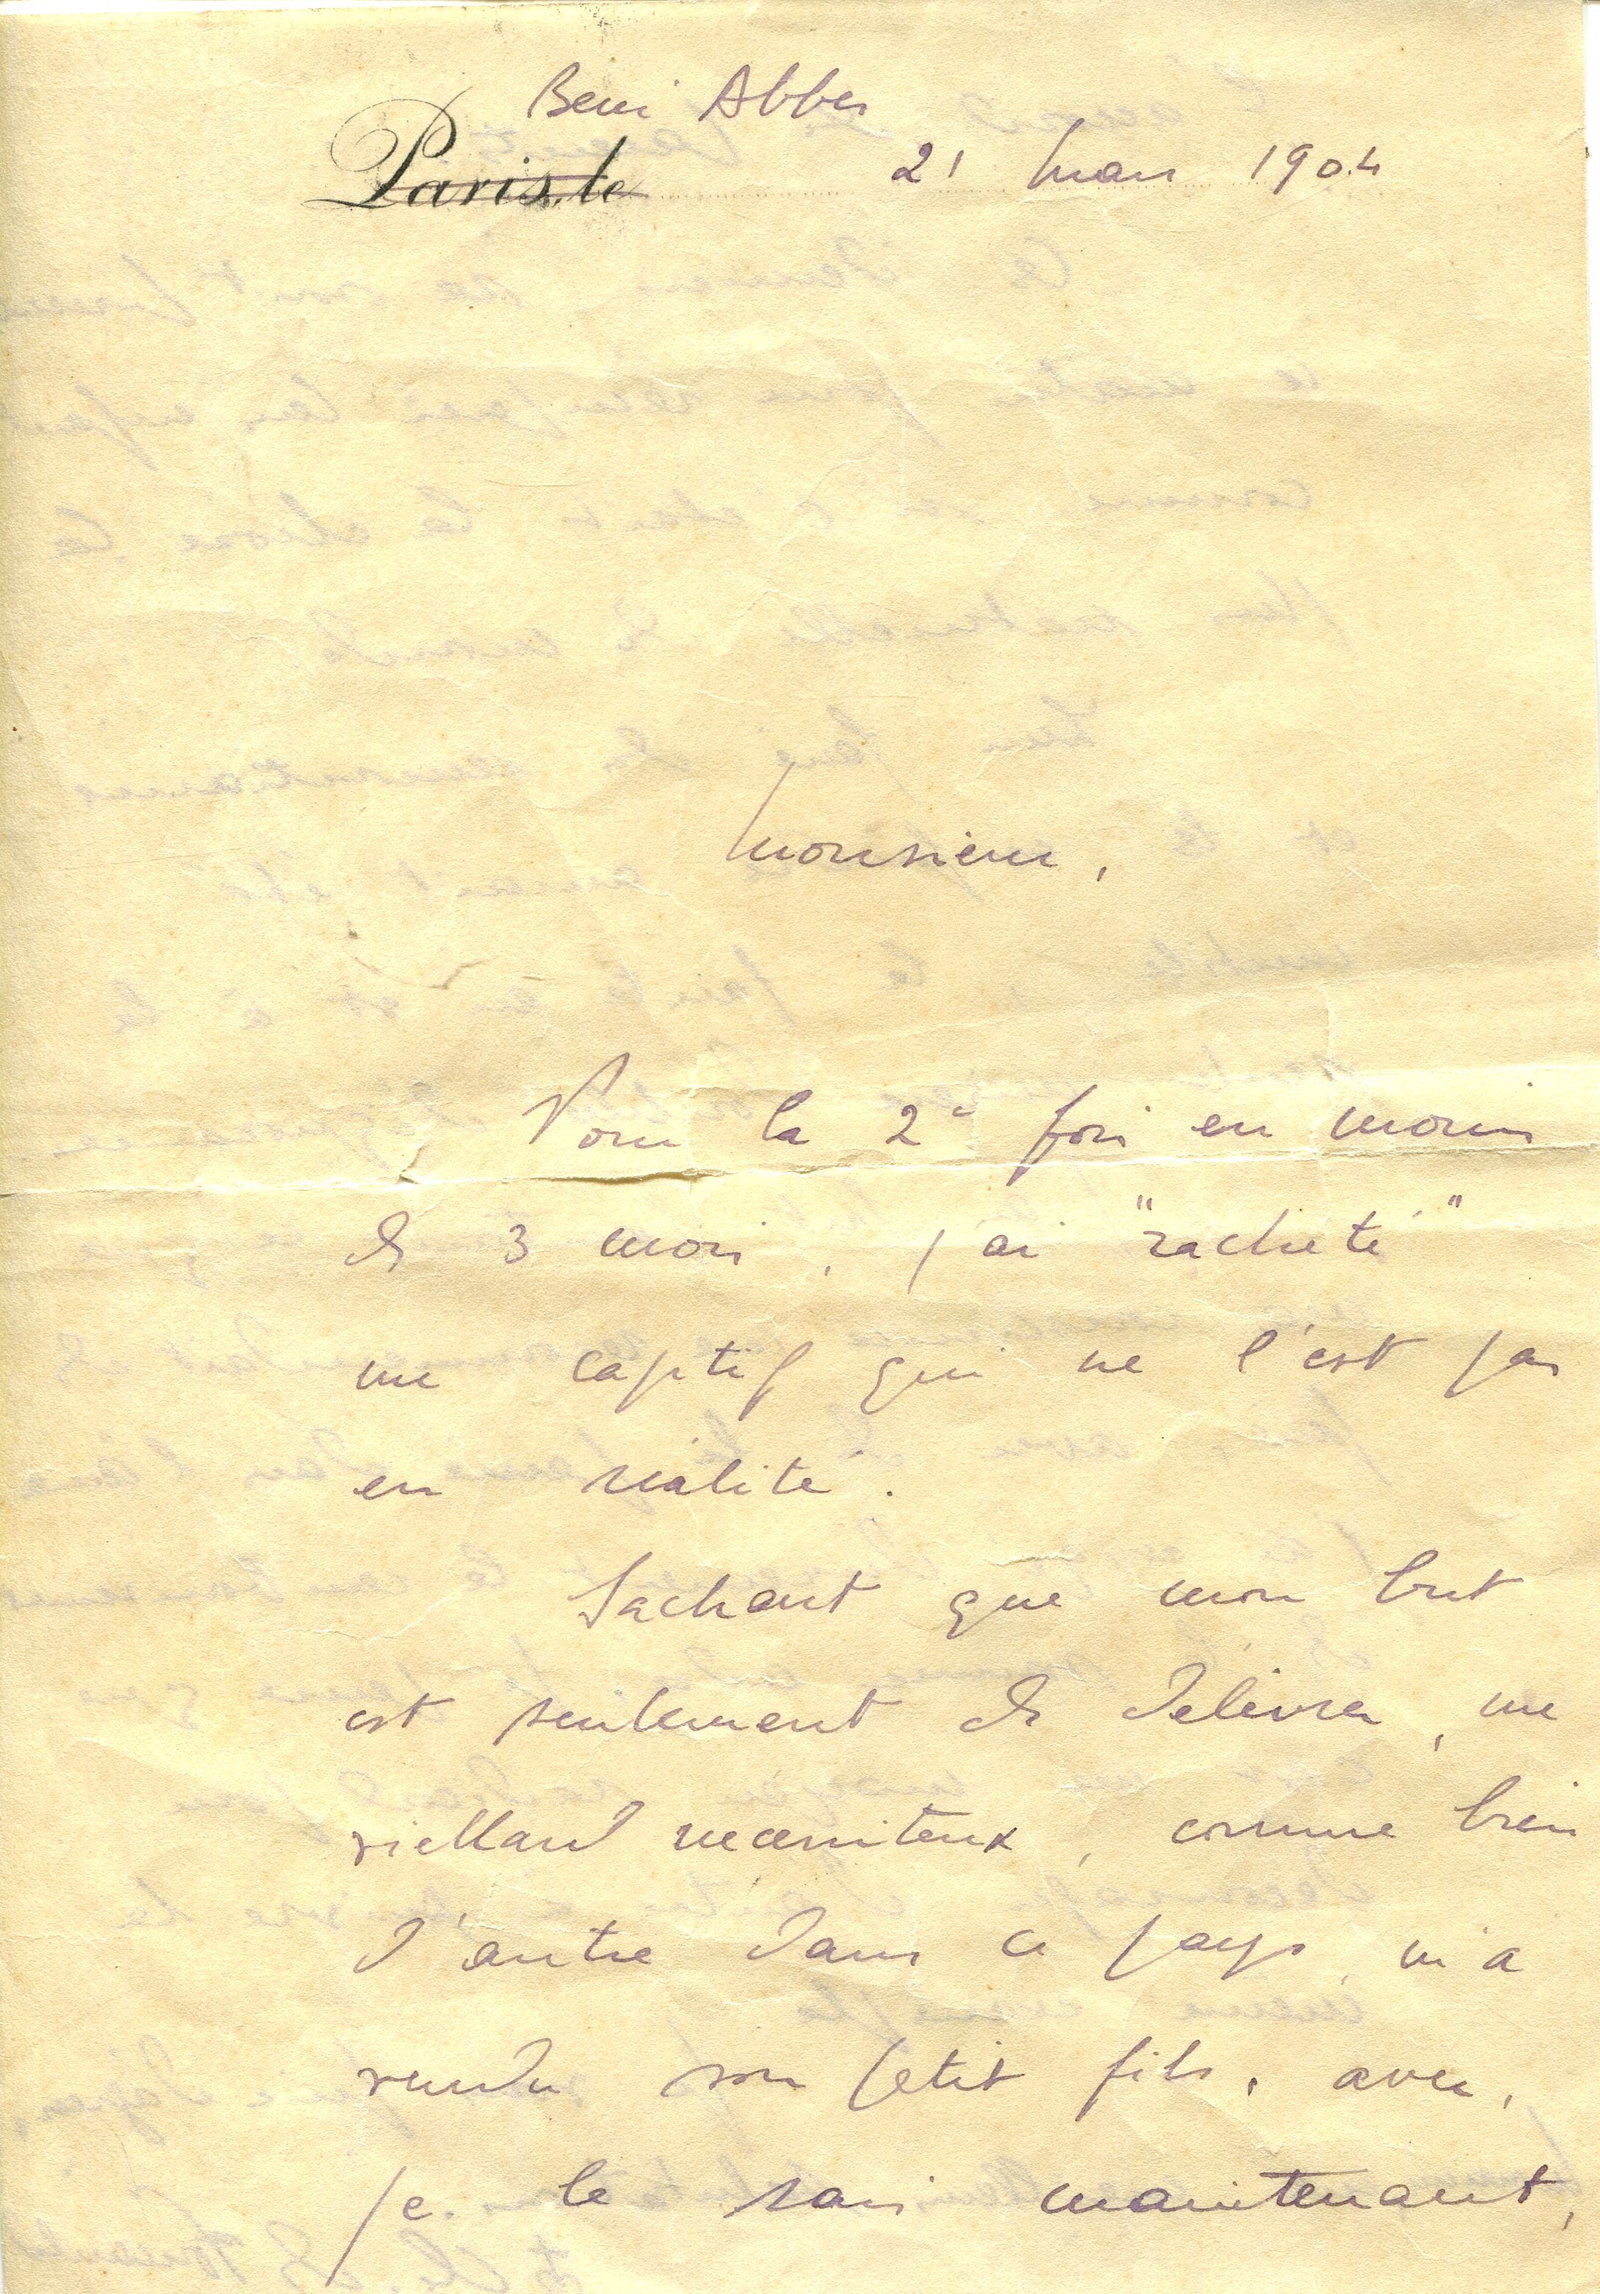 Beni Abbes
Paris, le 21 mars 1904
Monsieur,
Pour la 2e fois en moins
de 3 mois, j'ai "racheté"
un captif qui ne l'est pas
en réalité.
Sachant que mon but
est seulement de délivrer, un
vieillard necessiteux, comme bien
d'autre dans ce pays, m'a
vendu son petit fils, avec,
je le sais maintenant,